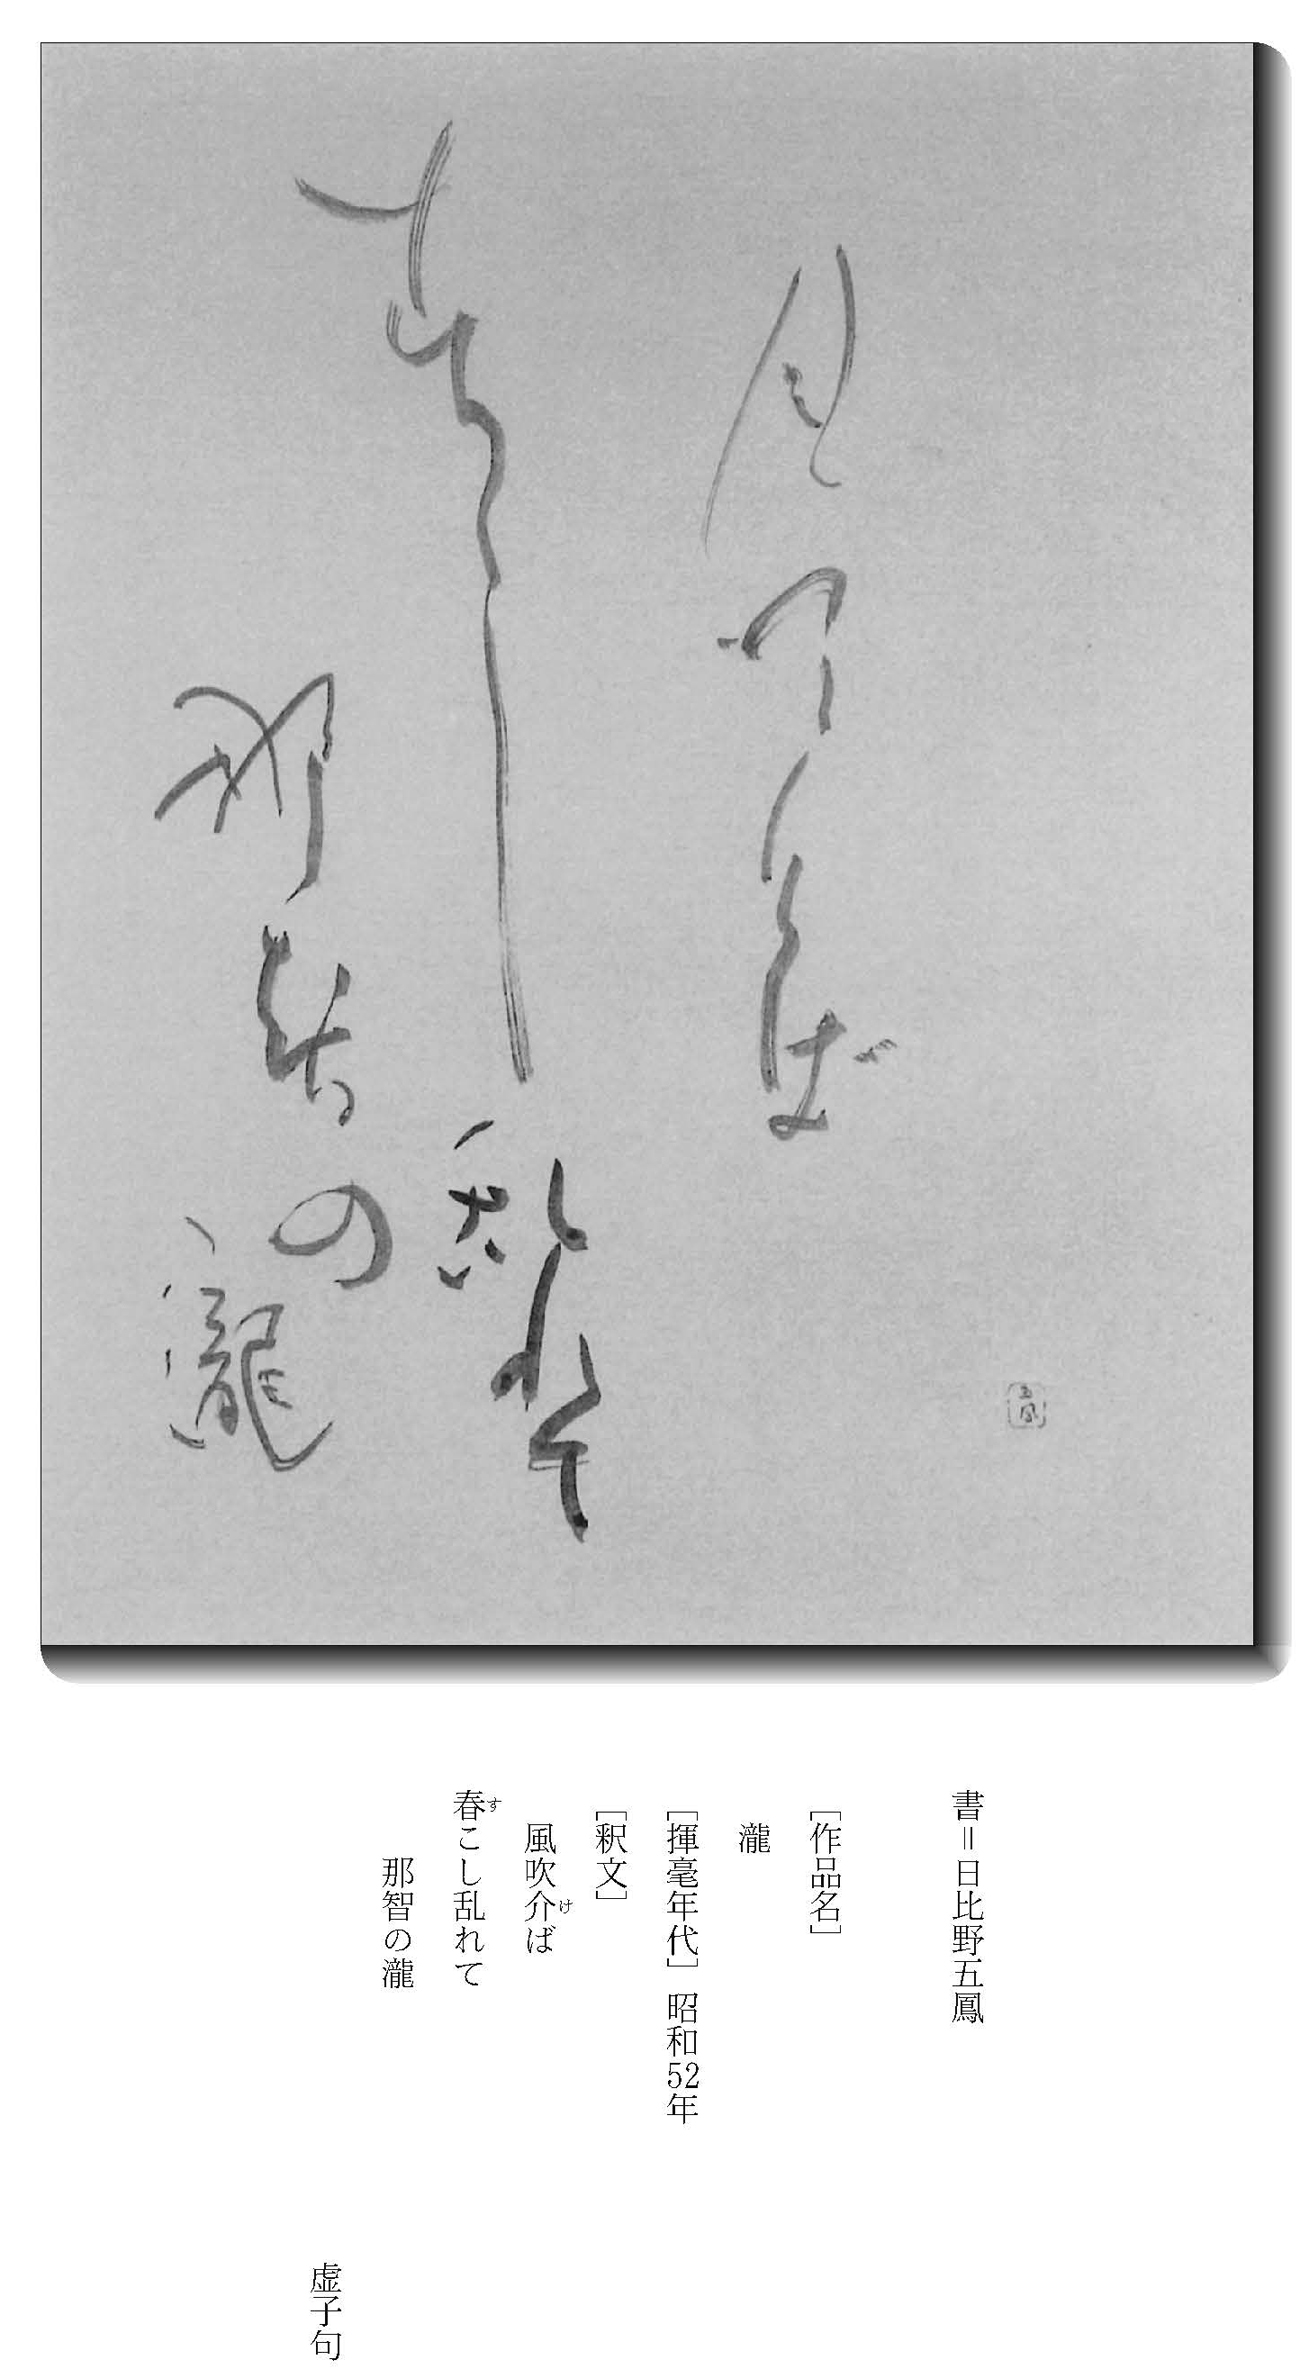 風吹介ば
春こし
乱れて
那智の
瀧
五鳳
書=日比野五鳳
[作品名]
瀧
[揮毫年代] 昭和52年
[釈文]
風吹介ば
け
春こし乱れて
す
那智の瀧
虚子句